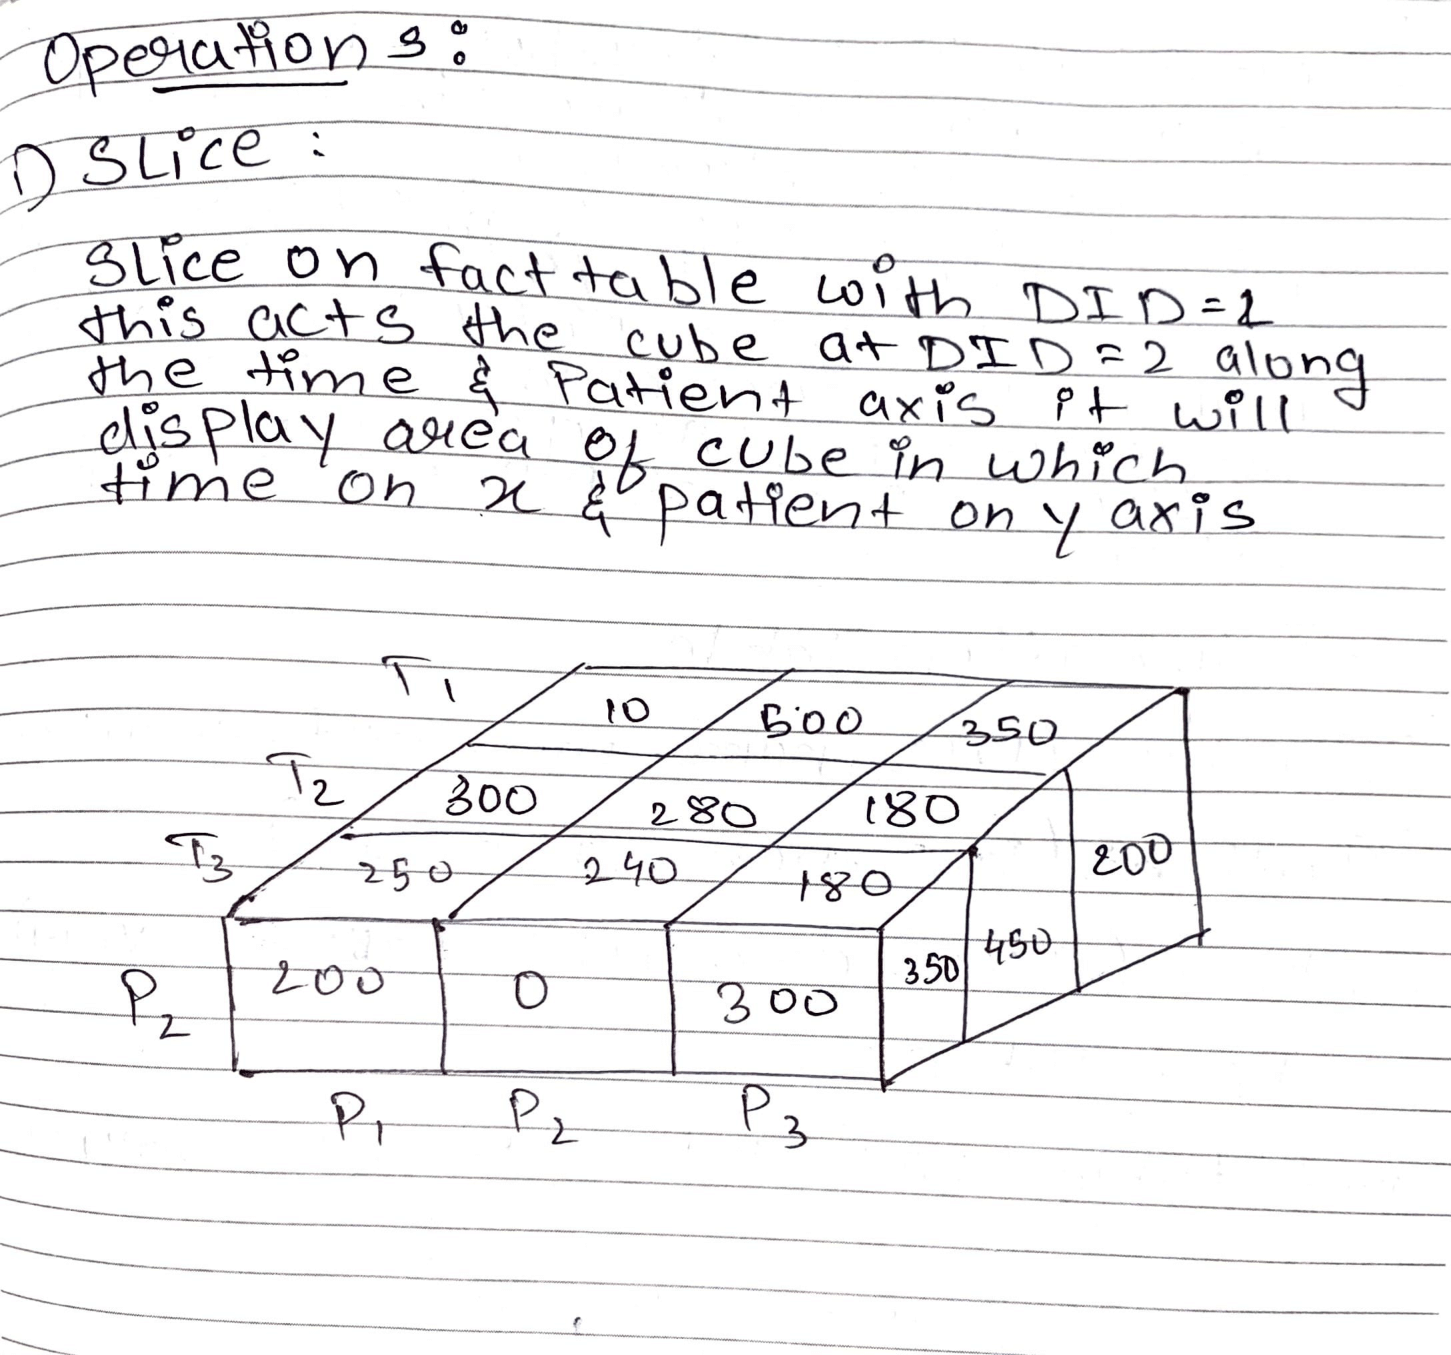 Operations:
1) Slice :
Slice on fact table with DID=2
this acts the cube at DID=2 along
the time & Patient axis it will
display area of cube in which
time on x & patient on y axis
T1 10 500 350
T2 300 280 180
T3 250 240 180
200
450
350
P2 200 0 300
P1 P2 P3